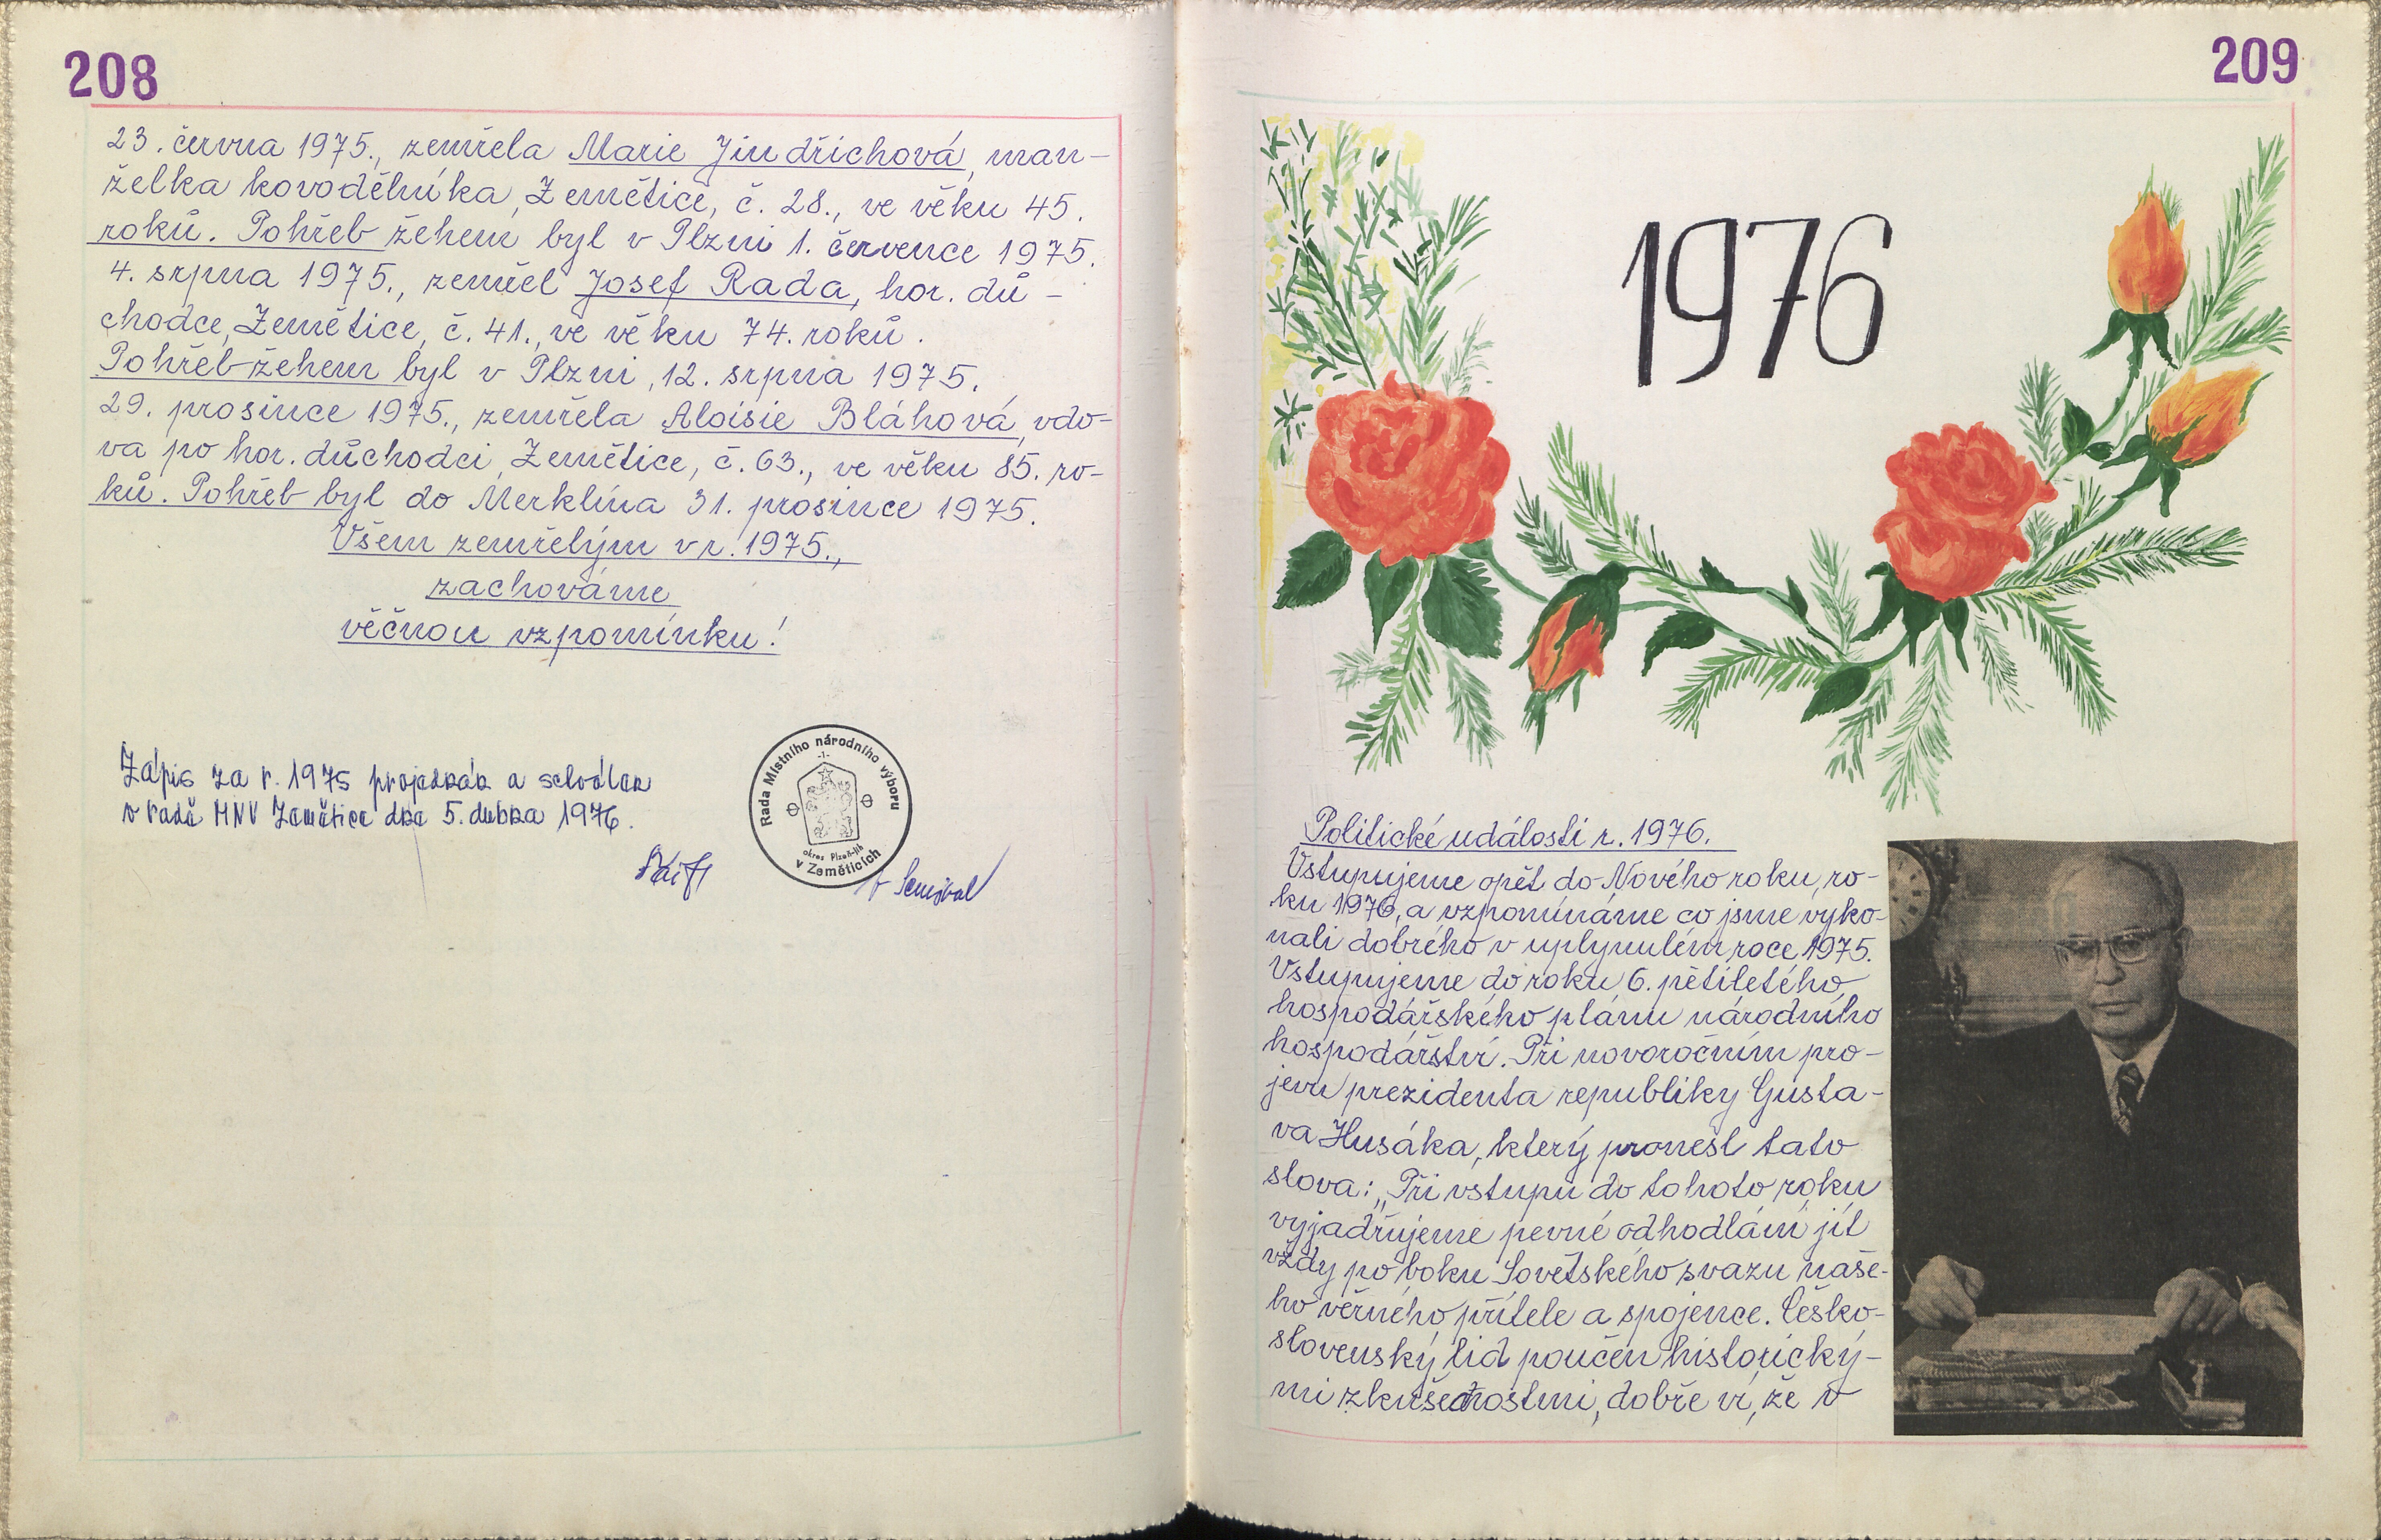 208
23. června 1975., zemřela Marie Jindřichová, man-
želka kovodělníka, Zemětice, č. 28., ve věku 45.
roků. Pohřeb žehem byl v Plzni 1. července 1975.
4. srpna 1975., zemřel Josef Rada, hor. dů-
chodce, Zemětice, č. 41., ve věku 74. roků.
Pohřeb-žehem byl v Plzni, 12. srpna 1975.
29. prosince 1975., zemřela Aloisie Bláhová, vdo-
va po hor. důchodci, Zemětice, č. 63., ve věku 85. ro-
ků. Pohřeb byl do Merklína 31. prosince 1975.
Všem zemřelým v r. 1975.,
zachováme
věčnou vzpomínku!
Zápis za r. 1975 projednán a schválen
v radě MNV Zemětice dne 5. dubna 1976.
Rada Místního národního výboru
-1-
okres Plzeň-jih
v Zeměticích
209
1976
Politické události r. 1976.
Vstupujeme opět do Nového roku, ro-
ku 1976, a vzpomínáme co jsme vyko-
nali dobrého v uplynulém roce 1975.
Vstupujeme do roku 6. pětiletého
hospodářského plánu národního
hospodářství. Při novoročním pro-
jevu prezidenta republiky Gusta-
va Husáka, který pronesl tato
slova: „Při vstupu do tohoto roku
vyjadřujeme pevné odhodlání jít
vždy po boku Sovětského svazu naše-
ho věrného přítele a spojence. Česko-
slovenský lid poučen historický-
mi zkušenostmi, dobře ví, že v